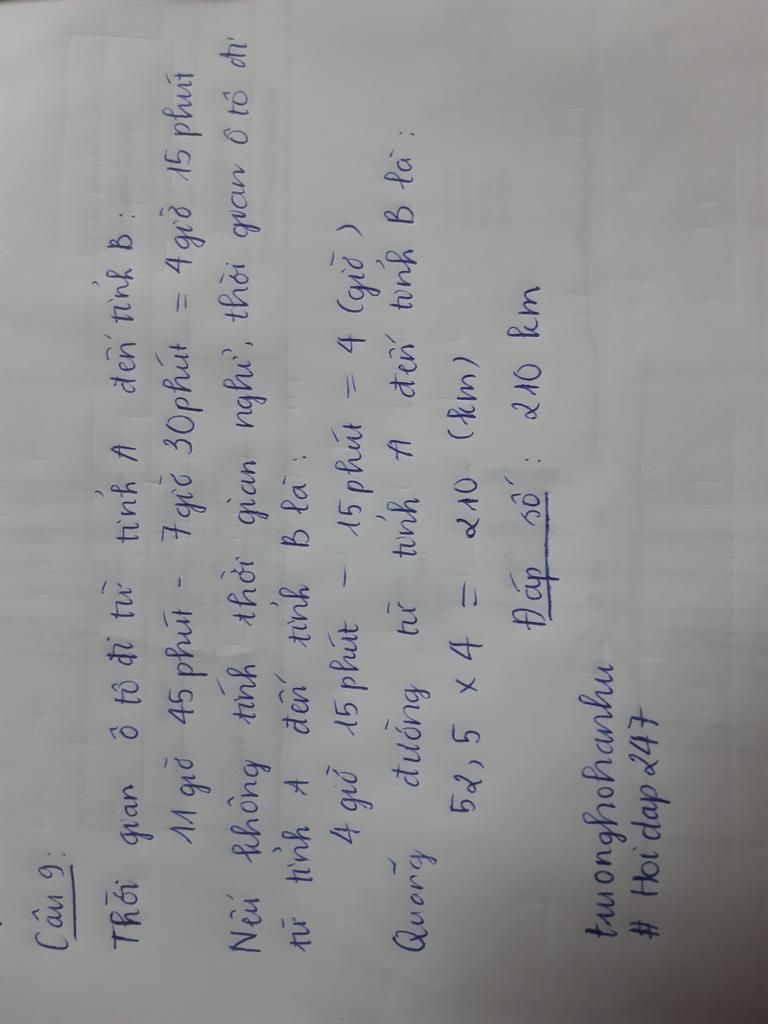 Câu 9:
Thời gian ô tô đi từ tỉnh A đến tỉnh B:
11 giờ 45 phút - 7 giờ 30 phút = 4 giờ 15 phút
Nếu không tính thời gian nghỉ, thời gian ô tô đi
từ tỉnh A đến tỉnh B là:
4 giờ 15 phút - 15 phút = 4 (giờ)
Quãng đường từ tỉnh A đến tỉnh B là:
52,5 x 4 = 210 (km)
Đáp số: 210 km
truonghohanhu
# Hoi dap 247